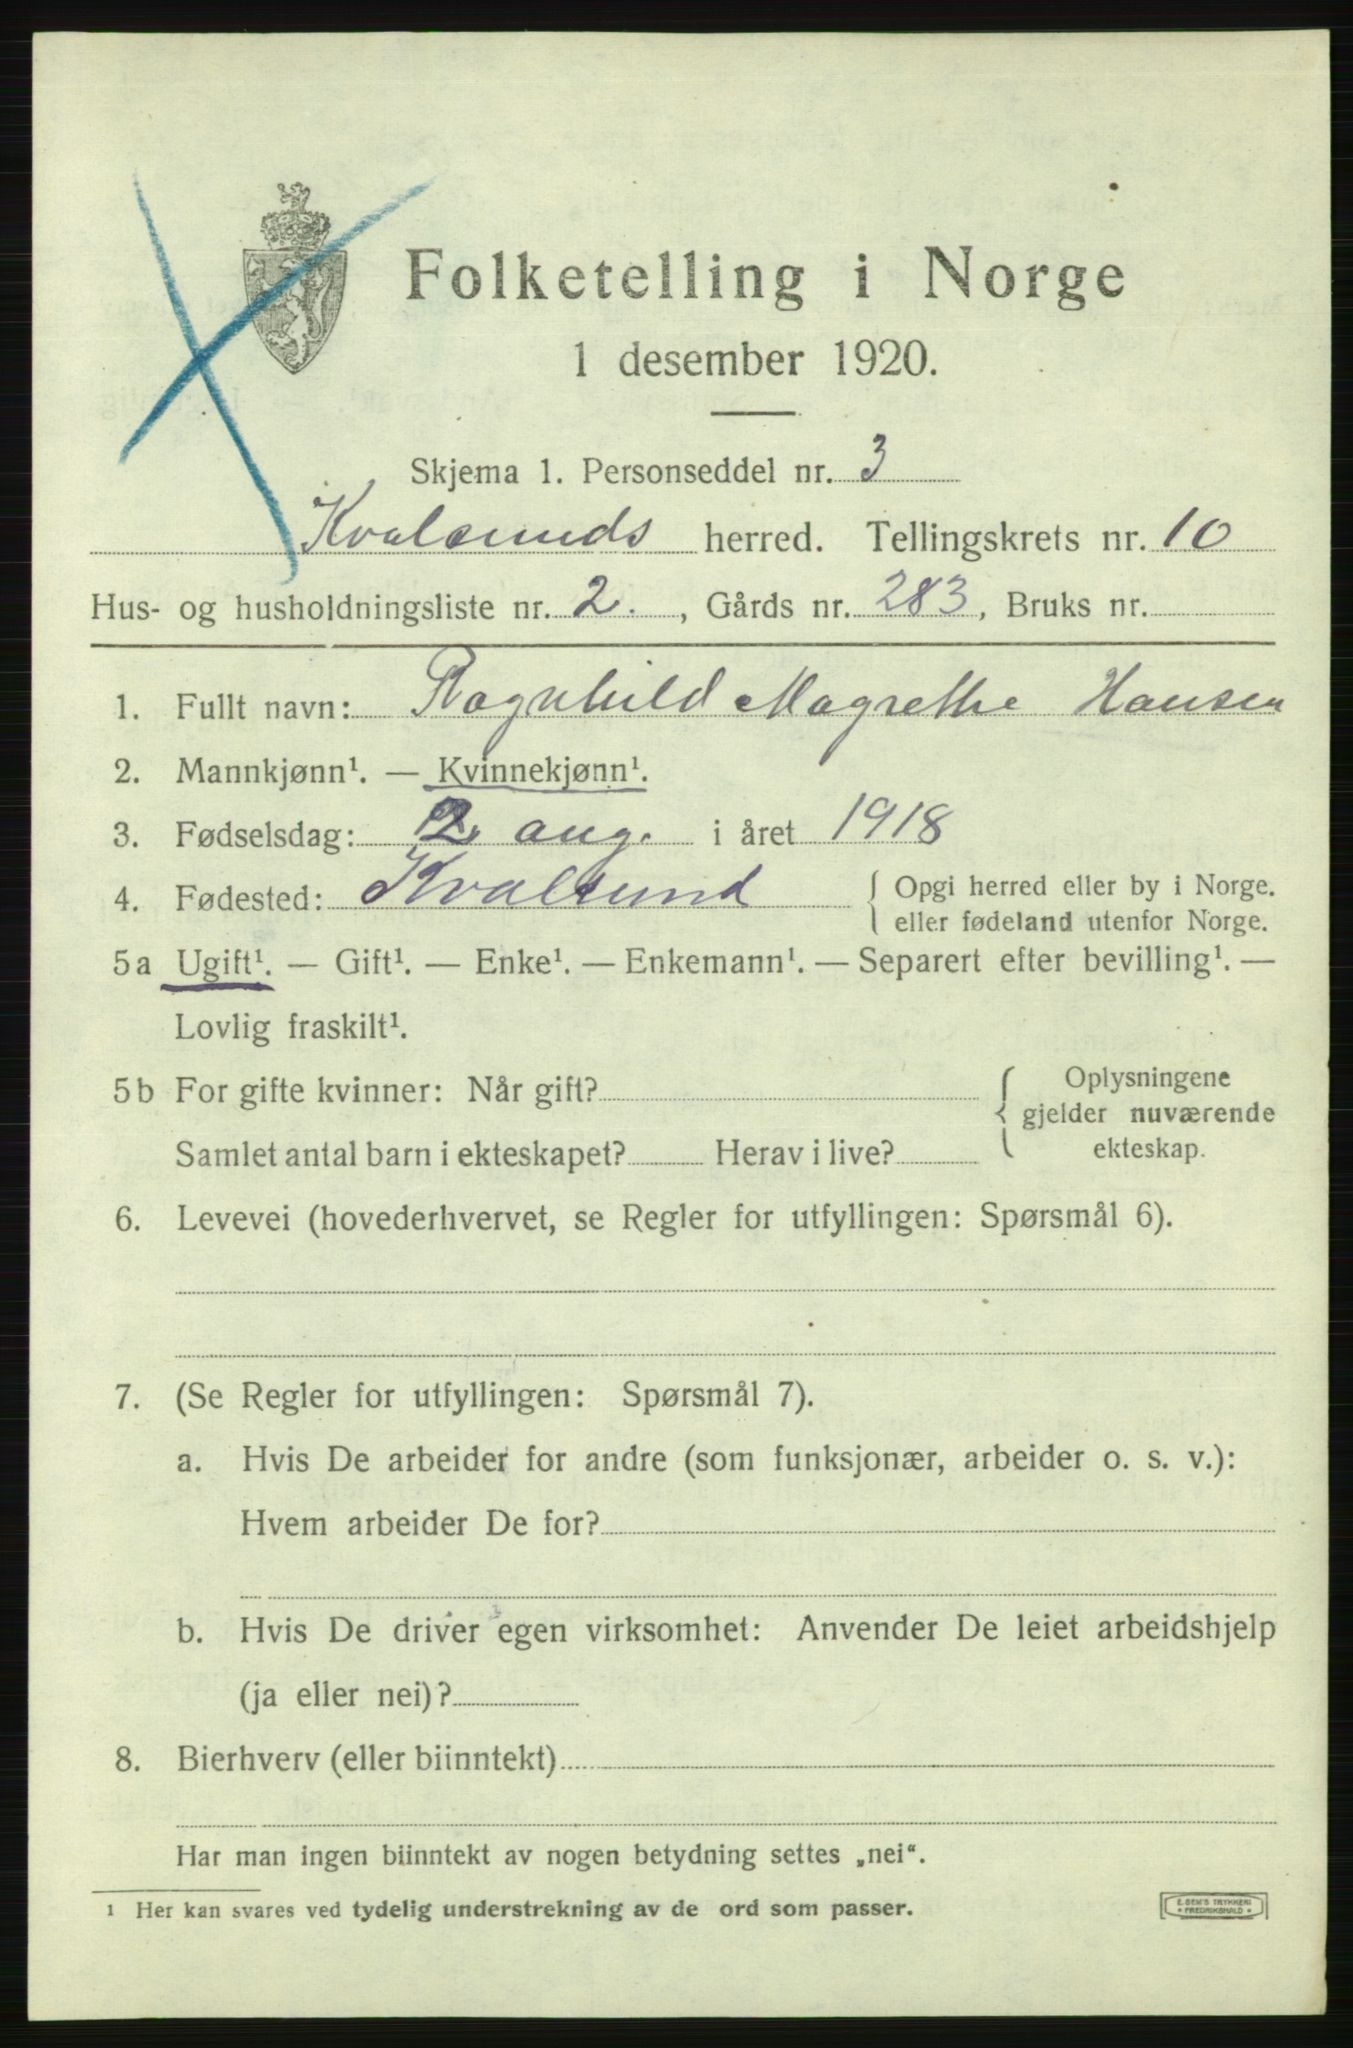 Folketelling i Norge
1 desember 1920.
Skjema 1. Personseddel nr. 3
Kvalsunds herred. Tellingskrets nr. 10
Hus- og husholdningsliste nr. 2. , Gårds nr. 283, Bruks nr.
1. Fullt navn: Ragnhild Magrethe Hansen
2. Mannkjønn¹. — Kvinnekjønn¹.
3. Fødselsdag: aug. i året 1918
4. Fødested: Kvalsund { Opgi herred eller by i Norge.
eller fødeland utenfor Norge.
5a Ugift¹. — Gift¹. — Enke¹. — Enkemann¹. — Separert efter bevilling¹. —
Lovlig fraskilt¹.
5b For gifte kvinner: Når gift? { Oplysningene
gjelder nuværende
Samlet antal barn i ekteskapet? Herav i live? ekteskap.
6. Levevei (hovederhvervet, se Regler for utfyllingen: Spørsmål 6).
7. (Se Regler for utfyllingen: Spørsmål 7).
a. Hvis De arbeider for andre (som funksjonær, arbeider o. s. v.):
Hvem arbeider De for?
b. Hvis De driver egen virksomhet: Anvender De leiet arbeidshjelp
(ja eller nei)?
8. Bierhverv (eller biinntekt)
Har man ingen biinntekt av nogen betydning settes „nei“.
¹ Her kan svares ved tydelig understrekning av de ord som passer.
E. SEM'S TRYKKERI
• FREDRIKSHALD •